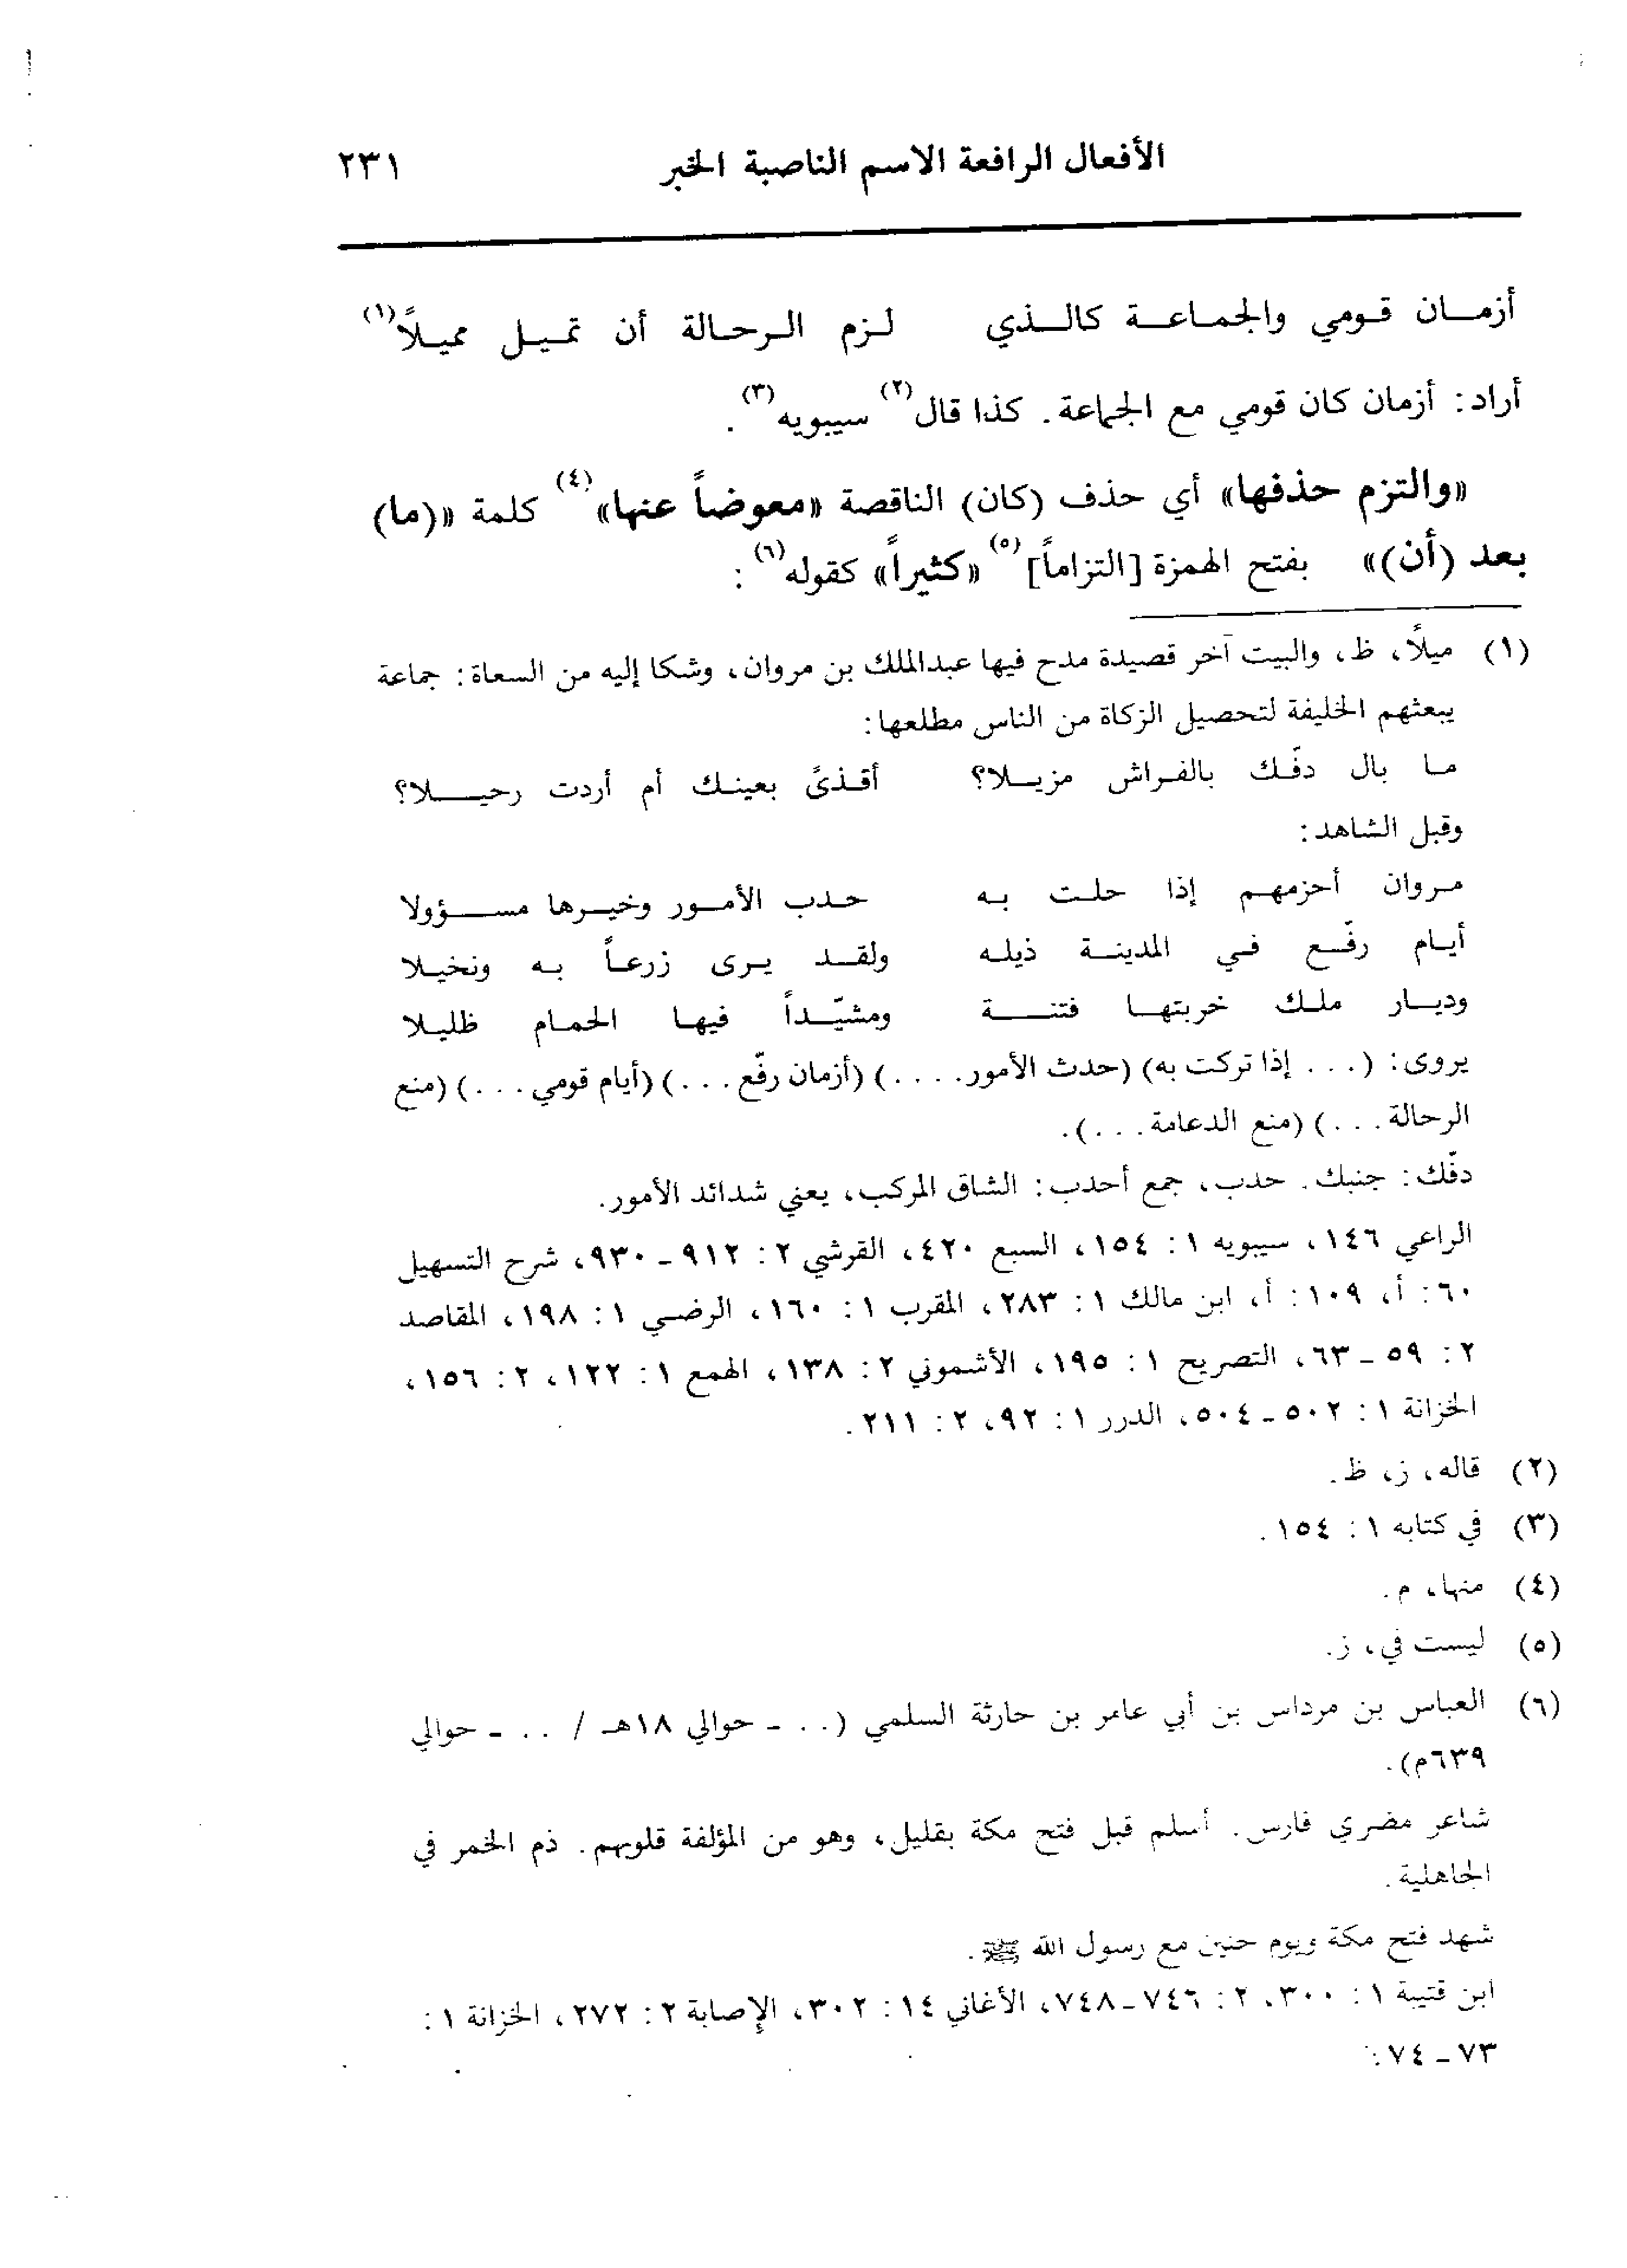 الأفعال الرافعة الاسم الناصبة الخبر ٢٣١
أزمـــان قـومي والجمـاعـــة كالـــذي لـزم الـرحـالة أن تميـل مميـلاً(١)
أراد: أزمان كان قومي مع الجماعة. كذا قال(٢) سيبويه(٣).
«والتزم حذفها» أي حذف (كان) الناقصة «معوضاً عنها»(٤) كلمة «(ما)
بعد (أن)» بفتح الهمزة [التزاماً](٥) «كثيراً» كقوله(٦):
(١) ميلًا، ظ، والبيت آخر قصيدة مدح فيها عبدالملك بن مروان، وشكا إليه من السعاة: جماعة
يبعثهم الخليفة لتحصيل الزكاة من الناس مطلعها:
مـا بال دفّـك بالفـراش مزيـــلا؟ أقـذىً بعينـك أم أردت رحيــــلا؟
وقبل الشاهد:
مـروان أحزمهـم إذا حلـت بـه حـدب الأمـور وخيـرها مســـؤولا
أيـام رفّـــع فـي المدينـــة ذيلـه ولقـــد يـرى زرعـاً بـه ونخيـلا
وديـــار ملـك خربتهـــا فتنـــــة ومشيّـــداً فيهـا الحمـام ظليـلا
يروى: (... إذا تركت به) (حدث الأمور....) (أزمان رفّع...) (أيام قومي...) (منع
الرحالة...) (منع الدعامة...).
دفّك: جنبك. حدب، جمع أحدب: الشاق المركب، يعني شدائد الأمور.
الراعي ١٤٦، سيبويه ١: ١٥٤، السبع ٤٢٠، القرشي ٢: ٩١٢ـ ٩٣٠، شرح التسهيل
٦٠: أ، ١٠٩: أ، ابن مالك ١: ٢٨٣، المقرب ١: ١٦٠، الرضي ١: ١٩٨، المقاصد
٢: ٥٩ ـ ٦٣، التصريح ١: ١٩٥، الأشموني ٢: ١٣٨، الهمع ١: ١٢٢، ٢: ١٥٦،
الخزانة ١: ٥٠٢ ـ ٥٠٤، الدرر ١: ٩٢، ٢: ٢١١.
(٢) قاله، ز، ظ.
(٣) في كتابه ١: ١٥٤.
(٤) منها، م.
(٥) ليست في، ز.
(٦) العباس بن مرداس بن أبي عامر بن حارثة السلمي (.. ـ حوالي ١٨هـ / .. ـ حوالي
٦٣٩م).
شاعر مضري فارس. أسلم قبل فتح مكة بقليل، وهو من المؤلفة قلوبهم. ذم الخمر في
الجاهلية.
شهد فتح مكة ويوم حنين مع رسول الله ﷺ.
ابن قتيبة ١: ٣٠٠، ٢: ٧٤٦ـ٧٤٨، الأغاني ١٤: ٣٠٢، الإصابة ٢: ٢٧٢، الخزانة ١:
٧٣ ـ ٧٤.